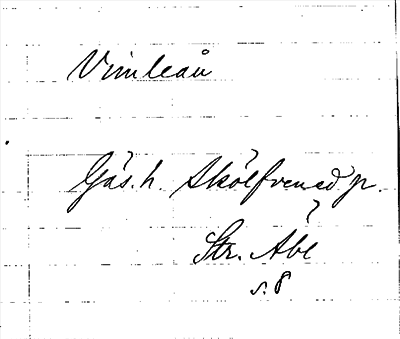 Vimleån
Gås. h. Skölfvened p.
Str. Abl
s. 8